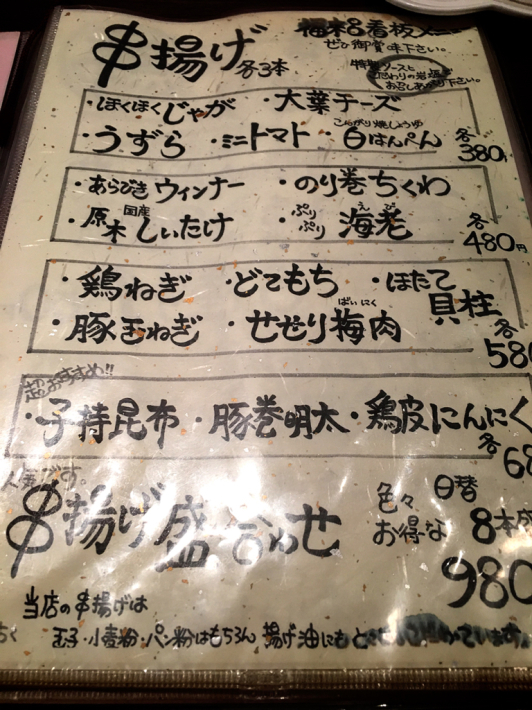 串揚げ 各3本
看板メニ
ぜひ御賞味下さい。
特製ソースと
こだわりの岩塩で
お召しあがり下さい。
・ほくほくじゃが ・大葉チーズ
・うずら ・ミニトマト ・こんがり焼しょうゆ 白はんぺん 各380円
・あらびきウィンナー ・のり巻ちくわ
・原木国産しいたけ ・ぷりぷり海老えび 各480円
・鶏ねぎ ・どてもち ・ほたて貝柱
・豚玉ねぎ ・せせり梅肉ばいにく 各58
超おすすめ!!
・子持昆布 ・豚巻明太 ・鶏皮にんにく
各68
人気です。
串揚げ盛合わせ
色々日替
お得な8本
980
当店の串揚げは
玉子・小麦粉・パン粉はもちろん 揚げ油にも